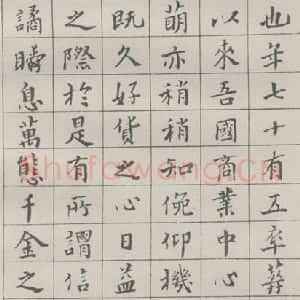 也年七十有五卒葬
以來吾國商業中心
萌亦稍稍知俛仰機
既久好貨之心日益
之際於是有所謂信
譎瞬息萬態千金之
shufawang.CN